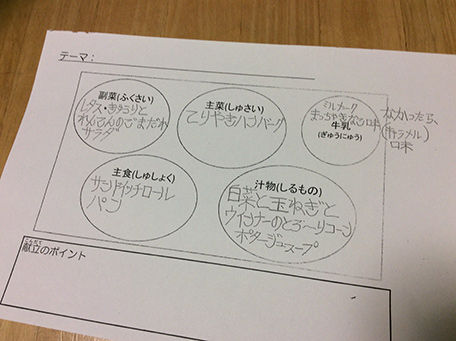 テーマ：
副菜(ふくさい)
レタス・きゅうりと
れんこんのごまだれ
サラダ
主菜(しゅさい)
てりやきハンバーグ
ミルメーク
まっちゃきなこ味
牛乳
(ぎゅうにゅう)
なかったら、
(キャラメル)
味
主食(しゅしょく)
サンドイッチロール
パン
汁物(しるもの)
白菜と玉ねぎと
ウインナーのとろ〜りコーン
ポタージュスープ
献立のポイント
こんだて